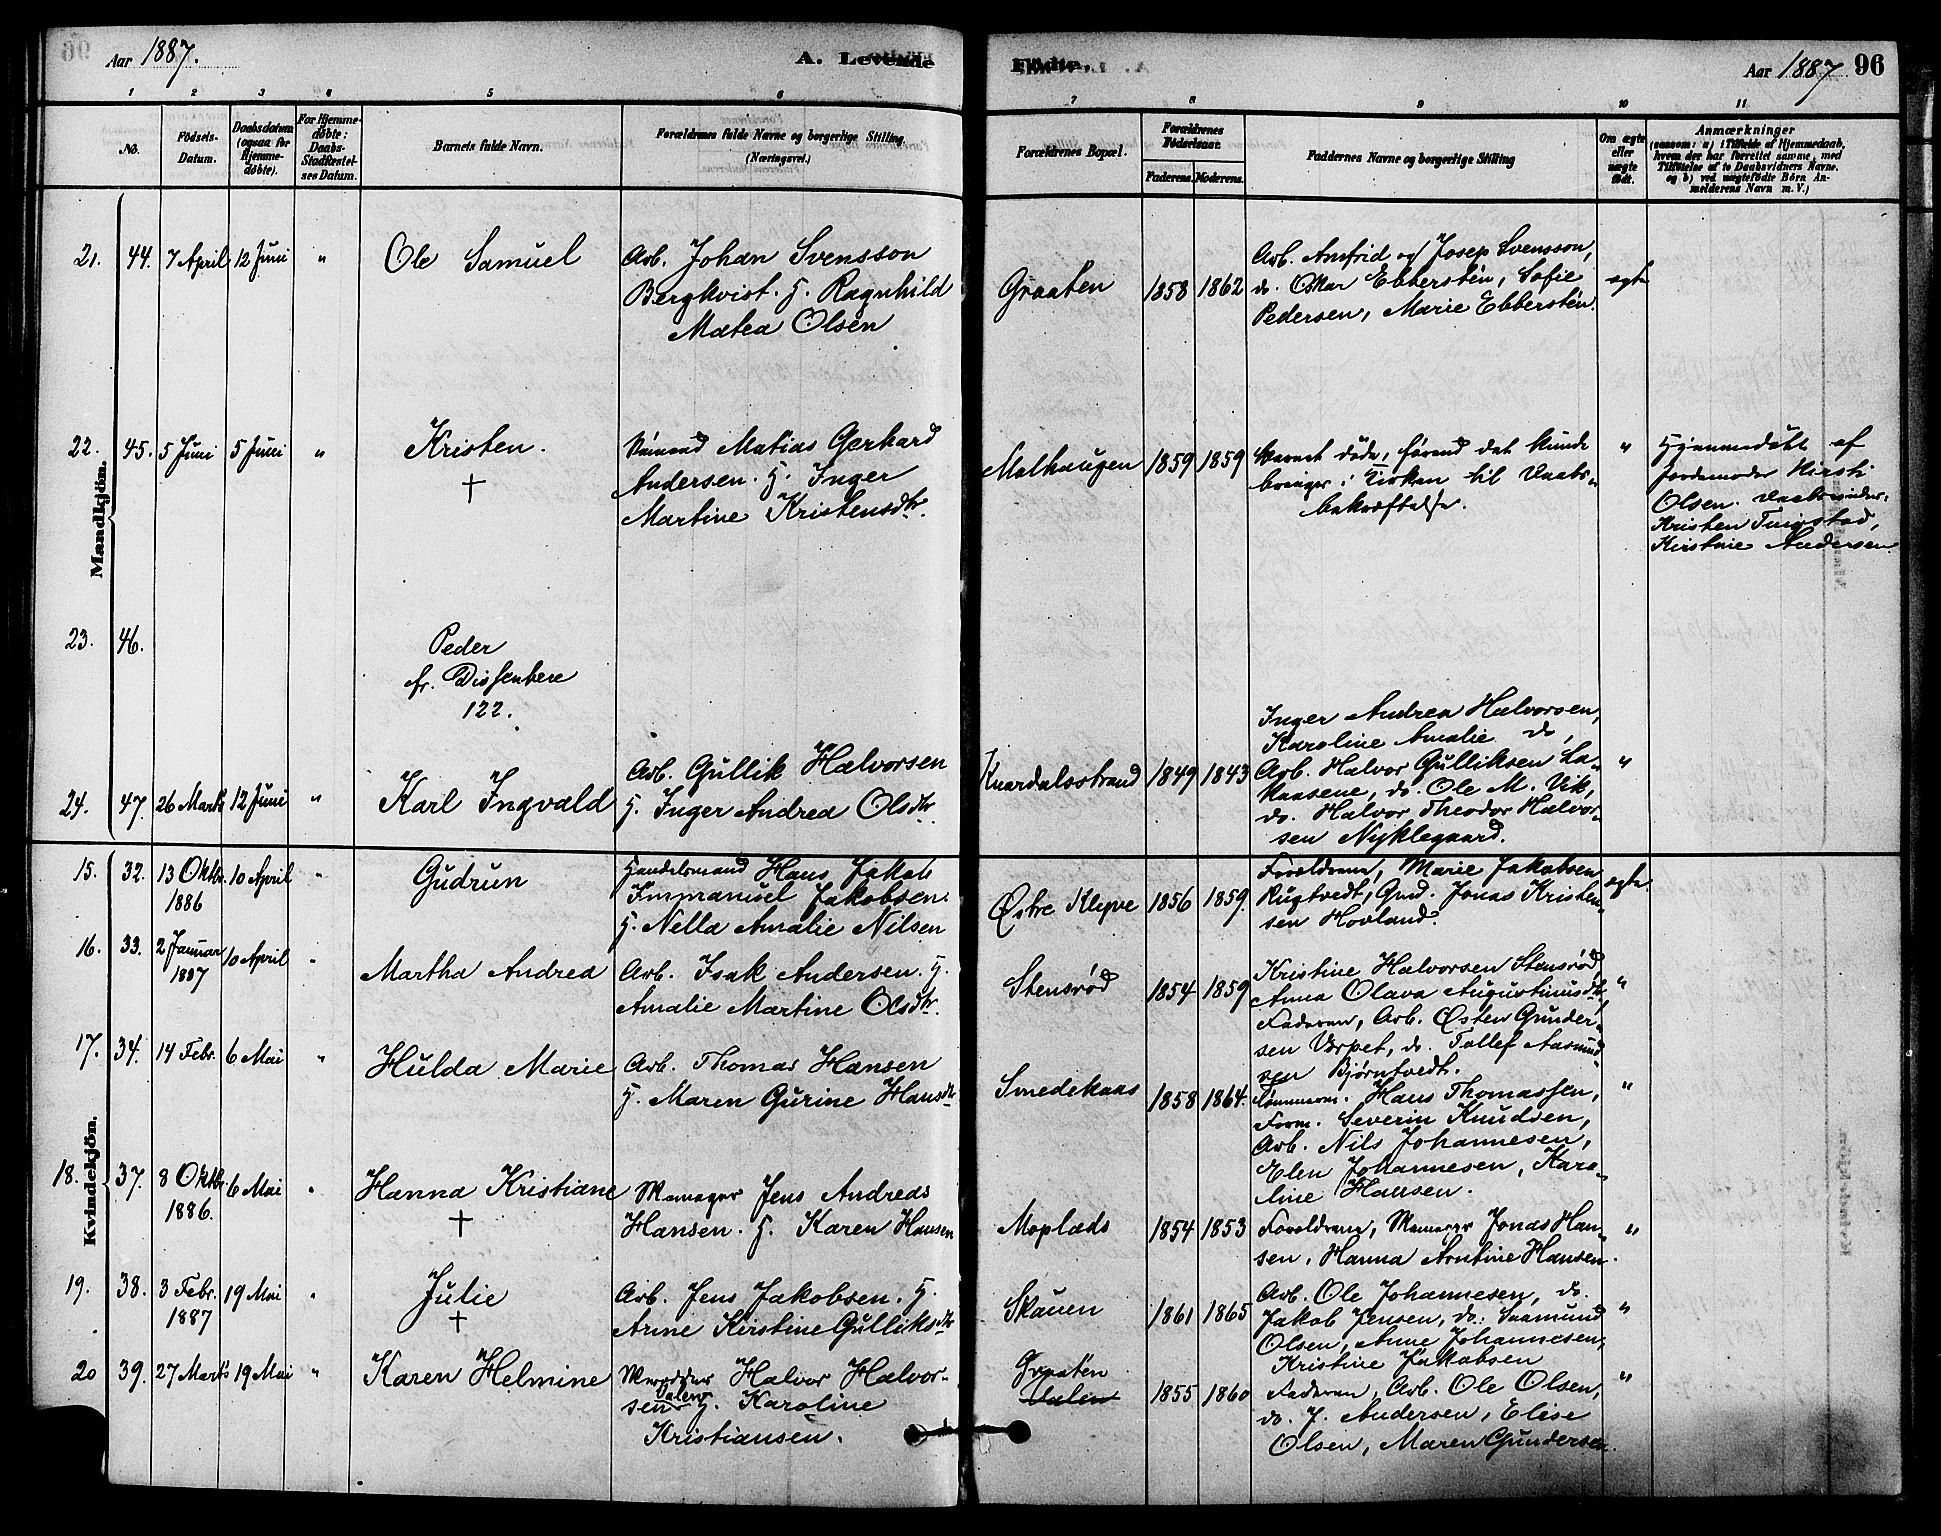 Aar 1887. A. Levende
1 2 3 4 5 6
No.
Födsels-
Datum.
Daabsdatum
(ogsaa for
Hjemme-
döbte).
For Hjemme-
döbte:
Daabs-
Stadfæstel-
ses Datum.
Barnets fulde Navn.
Forældrenes fulde Navne og borgerlige Stilling.
(Næringsvei.)
Mandkjön.
21. 44. 7 April 12 Juni " Ole Samuel Arb. Johan Svensson
Bergkvist. H. Ragnhild
Matea Olsen
22. 45. 5 Juni 5 Juni " Kristen. Matias Gerhard
† Andersen. H. Inger
Martine Kristensdtr.
23. 46. Peder
fr. Dissentere
122.
24. 47. 26 Marts 12 Juni " Karl Ingvald Arb. Gullik Halvorsen
H. Inger Andrea Olsdtr.
Kvindekjön.
15. 32. 13 Oktbr. 10 April " Gudrun Handelsmand Hans Jakob
1886 Immanuel Jakobsen.
H. Nella Amalie Nilsen
16. 33. 2 Januar 10 April " Martha Andrea Arb. Isak Andersen. H.
1887 Amalie Martine Olsdtr.
17. 34. 14 Febr. 6 Mai " Hulda Marie Arb. Thomas Hansen
H. Maren Gurine Hansdtr
18. 37. 8 Oktbr. 6 Mai " Hanna Kristiane Jens Andreas
1886. † Hansen. H. Karen Hansen
19. 38. 3 Febr. 19 Mai " Julie Arb. Jens Jakobsen. H.
1887 † Anne Kirstine Gulliksdtr
20 39. 27 Marts 19 Mai " Karen Helmine Halvor Halvor-
sen H. Karoline
Kristiansen.
Födte. Aar 1887 96
7 8 9 10 11
Forældrenes Bopæl.
Forældrenes
Födselsaar.
Faderens. Moderens.
Faddernes Navne og borgerlige Stilling
Om ægte
eller
uægte
födt.
Anmærkninger
(saasom: a) i Tilfælde af Hjemmedaab,
hvem der har forrettet samme, med
Tilföielse af to Daabsvidners Navne.
og b) ved uægtefödte Börn An-
melderens Navn m. V.)
Graaten 1858 1862 Arb. Amfrid og Josep Svensson,
do. Oskar Ebbersten, Sofie
Pedersen, Marie Ebbersten. ægte
Malhaugen 1859 1859 Barnet døde, førend det kunde
bringes i Kirken til Daabs-
bekræftelse.
" Hjemmedøbt af
Jordemoder Kirsti
Olsen. Daabsvidner:
Kristen Tingstad,
Kirstine Andersen
Knardalsstrand 1849 1843 Inger Andrea Halvorsen,
Karoline Amalie do,
Arb. Halvor Gulliksen
do. Ole M. Vik,
do. Halvor Theodor Halvor-
sen Nyklegaard. "
Østre Klyve 1856 1859. Forældrene, Marie Jakobsen
Rugtvedt, Gmd. Jonas Kristen-
sen Hovland. ægte
Stensrød 1854 1859 Kristine Halvorsen Stensrød,
Anna Olava Augustinusdtr,
Faderen, Arb. Østen Gunder-
sen Verpet, do. Tollef Aasmund-
sen Bjørntvedt. "
Smedekaas 1858 1864. Tømmerm. Hans Thomassen,
Form. Severin Knudsen,
Arb. Nils Johannesen,
Elen Johannesen, Karo-
line Hansen. "
Moplads 1854 1853 Forældrene, Jonas Han-
sen, Hanna Arntine Hansen. "
Skauen 1861 1865 Arb. Ole Johannesen, do.
Jakob Jensen, do. Saamund
Olsen, Anne Johannesen,
Kristine Jakobsen "
Graaten 1855 1860 Faderen, Arb. Ole Olsen,
do. J. Andersen, Elise
Olsen, Maren Gundersen. "